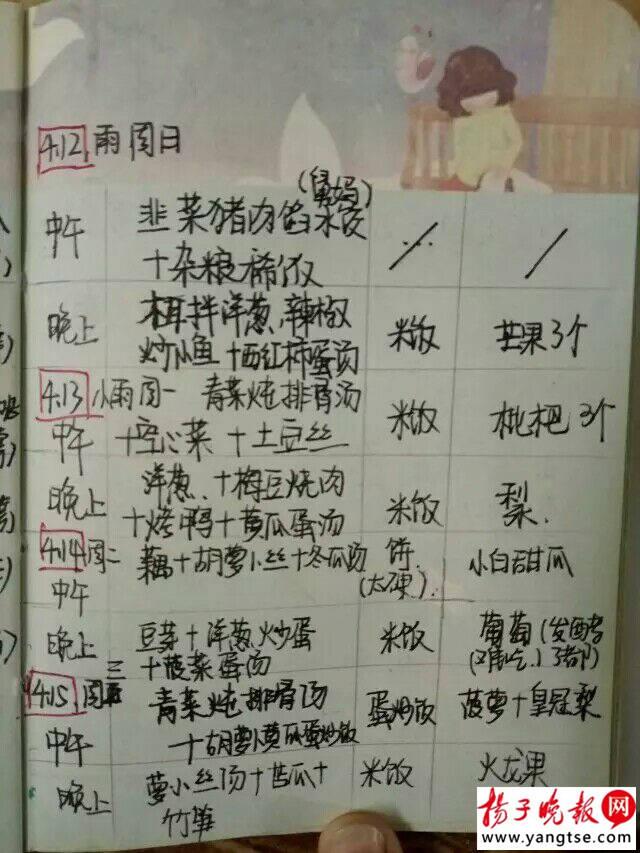 4.12. 雨 周日
(舅妈)
中午 韭菜猪肉馅水饺
十杂粮稀饭
晚上 木耳拌洋葱、辣椒 米饭 芒果3个
炒小鱼十西红柿蛋汤
4.13 小雨周一 青菜炖排骨汤 米饭 枇杷3个
中午 十空心菜十土豆丝
晚上 洋葱、十梅豆烧肉 米饭 梨.
十烤鸭十黄瓜蛋汤
4.14 周二 藕十胡萝卜丝十冬瓜汤 饼. 小白甜瓜
中午 (太硬).
晚上 豆芽十洋葱炒蛋 米饭 葡萄(发酵
十菠菜蛋汤
4.15. 周三 青菜炖排骨汤 蛋炒饭 菠萝十皇冠梨
中午 十胡萝卜黄瓜蛋炒饭
晚上 萝卜丝汤十苦瓜十 米饭 火龙果
竹笋
扬子晚报网
www.yangtse.com